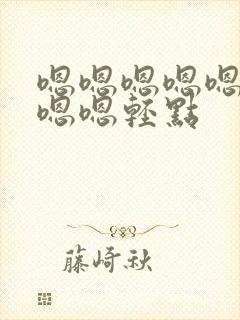 嗯嗯嗯嗯嗯
嗯嗯輕點
藤崎秋